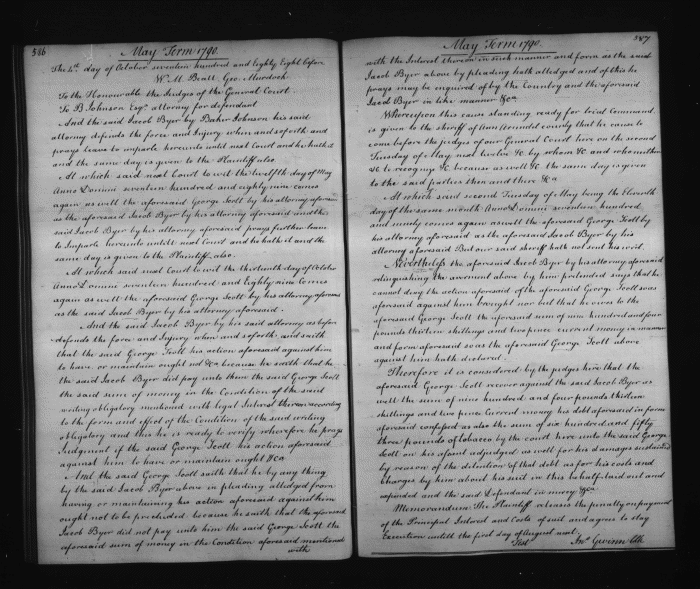 586
May Term 1790.
The 4th day of October seventeen hundred and Eighty Eight before
W. M. Beall, Geo. Murdoch
To the Honourable the Judges of the General Court
To B Johnson Esqr attorney for defendant
And the said Jacob Byer by Baker Johnson his said
attorney defends the force and Injury when and soforth and
prays leave to imparle hereunto until next Court and he hath it
and the same day is given to the Plaintiff also
At which said next Court to wit the twelfth day of May
Anno Domini seventeen hundred and eighty nine comes
again as well the aforesaid George Scott by his attorney aforesaid
as the aforesaid Jacob Byer by his attorney aforesaid and the
said Jacob Byer by his attorney aforesaid prays further leave
to Imparle hereunto untill next Court and he hath it and the
same day is given to the Plaintiff also.
At which said next Court to wit the thirteenth day of October
Anno Domini seventeen hundred and Eighty nine Comes
again as well the aforesaid George Scott by his attorney aforesaid
as the said Jacob Byer by his attorney aforesaid.
And the said Jacob Byer by his said attorney as before
defends the force and Injury when and soforth and saith
that the said George Scott his action aforesaid against him
to have or maintain ought not &ca because he saith that he
the said Jacob Byer did pay unto him the said George Scott
the said sum of money in the Condition of the said
writing obligatory mentioned with legal Interest thereon according
to the form and effect of the Condition of the said writing
obligatory and this he is ready to verify wherefore he prays
Judgment if the said George Scott his action aforesaid
against him to have or maintain ought &ca
And the said George Scott saith that he by any thing
by the said Jacob Byer above in pleading alledged from
having or maintaining his action aforesaid against him
ought not to be precluded because he saith that the aforesaid
Jacob Byer did not pay unto him the said George Scott the
aforesaid sum of money in the Condition aforesaid mentioned
with
May Term 1790.
587
with the Interest thereon in such manner and form as the said
Jacob Byer above by pleading hath alledged and of this he
prays may be enquired of by the Country and the aforesaid
Jacob Byer in like manner &ca
Whereupon this cause standing ready for trial Command
is given to the sheriff of Ann Arundel county that he cause to
come before the judges of our General Court here on the second
Tuesday of May next twelve &c. by whom &c and who neither
&c to recognize &c because as well &c the same day is given
to the said parties then and there &ca
At which said second Tuesday of May being the Eleventh
day of the same month Anno Domini seventeen hundred
and ninety comes again as well the aforesaid George Scott by
his attorney aforesaid as the aforesaid Jacob Byer by his
attorney aforesaid But our said sheriff hath not sent his writ.
Nevertheless the aforesaid Jacob Byer by his attorney aforesaid
relinquishing the averment above by him pretended says that he
cannot deny the action aforesaid of the aforesaid George Scott so as
aforesaid against him brought nor but that he owes to the
aforesaid George Scott the aforesaid sum of nine hundred and four
pounds thirteen shillings and two pence current money in manner
and form aforesaid so as the aforesaid George Scott above
against him hath declared.
Therefore it is considered by the judges here that the
aforesaid George Scott recover against the said Jacob Byer as
well the sum of nine hundred and four pounds thirteen
shillings and two pence Current money his debt aforesaid in form
aforesaid confessed as also the sum of six hundred and fifty
three pounds of tobacco by the court here unto the said George
Scott on his assent adjudged as well for his damages sustained
by reason of the detention of that debt as for his costs and
charges by him about his suit in this behalf laid out and
expended and the said Defendant in mercy &ca
Memorandum The Plaintiff releases the penalty on payment
of the Principal Interest and Costs of suit and agrees to stay
Execution untill the first day of August next.
Test
Jno Gwinn Clk